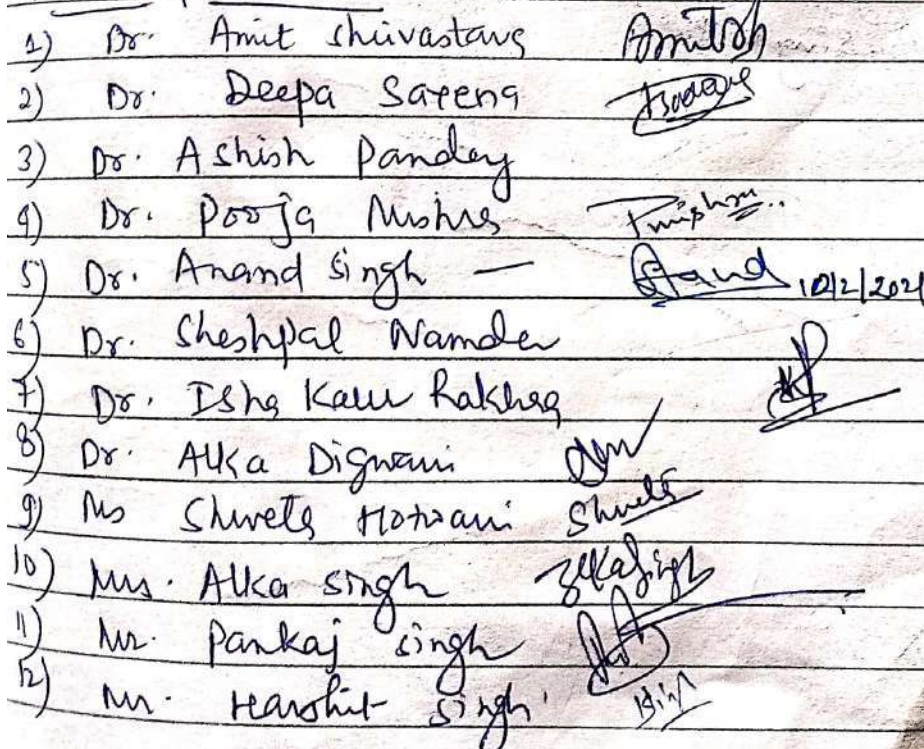 1) Dr. Amit Shrivastava Amitsh
2) Dr. Deepa Saxena
3) Dr. Ashish Pandey
4) Dr. Pooja Mishra Pmishra..
5) Dr. Anand Singh — Anand 10/2/2021
6) Dr. Sheshpal Namdev
7) Dr. Isha Kaur Rakhra
8) Dr. Alka Digwani
9) Ms Shweta Hotwani Shweta
10) Mrs. Alka singh Alka Singh
11) Mr. Pankaj singh
12) Mr. Harshit Singh